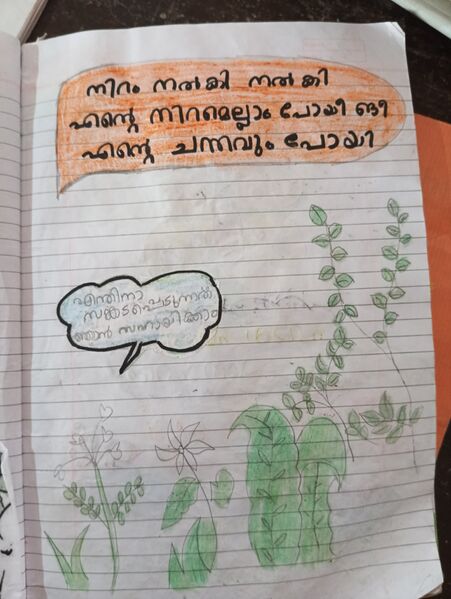 നിറം നൽകി നൽകി
എന്റെ നിറമെല്ലാം പോയീ ഈ
എന്റെ ചന്തവും പോയി
എന്തിനാ
സങ്കടപ്പെടുന്നത്
ഞാൻ സഹായിക്കാം